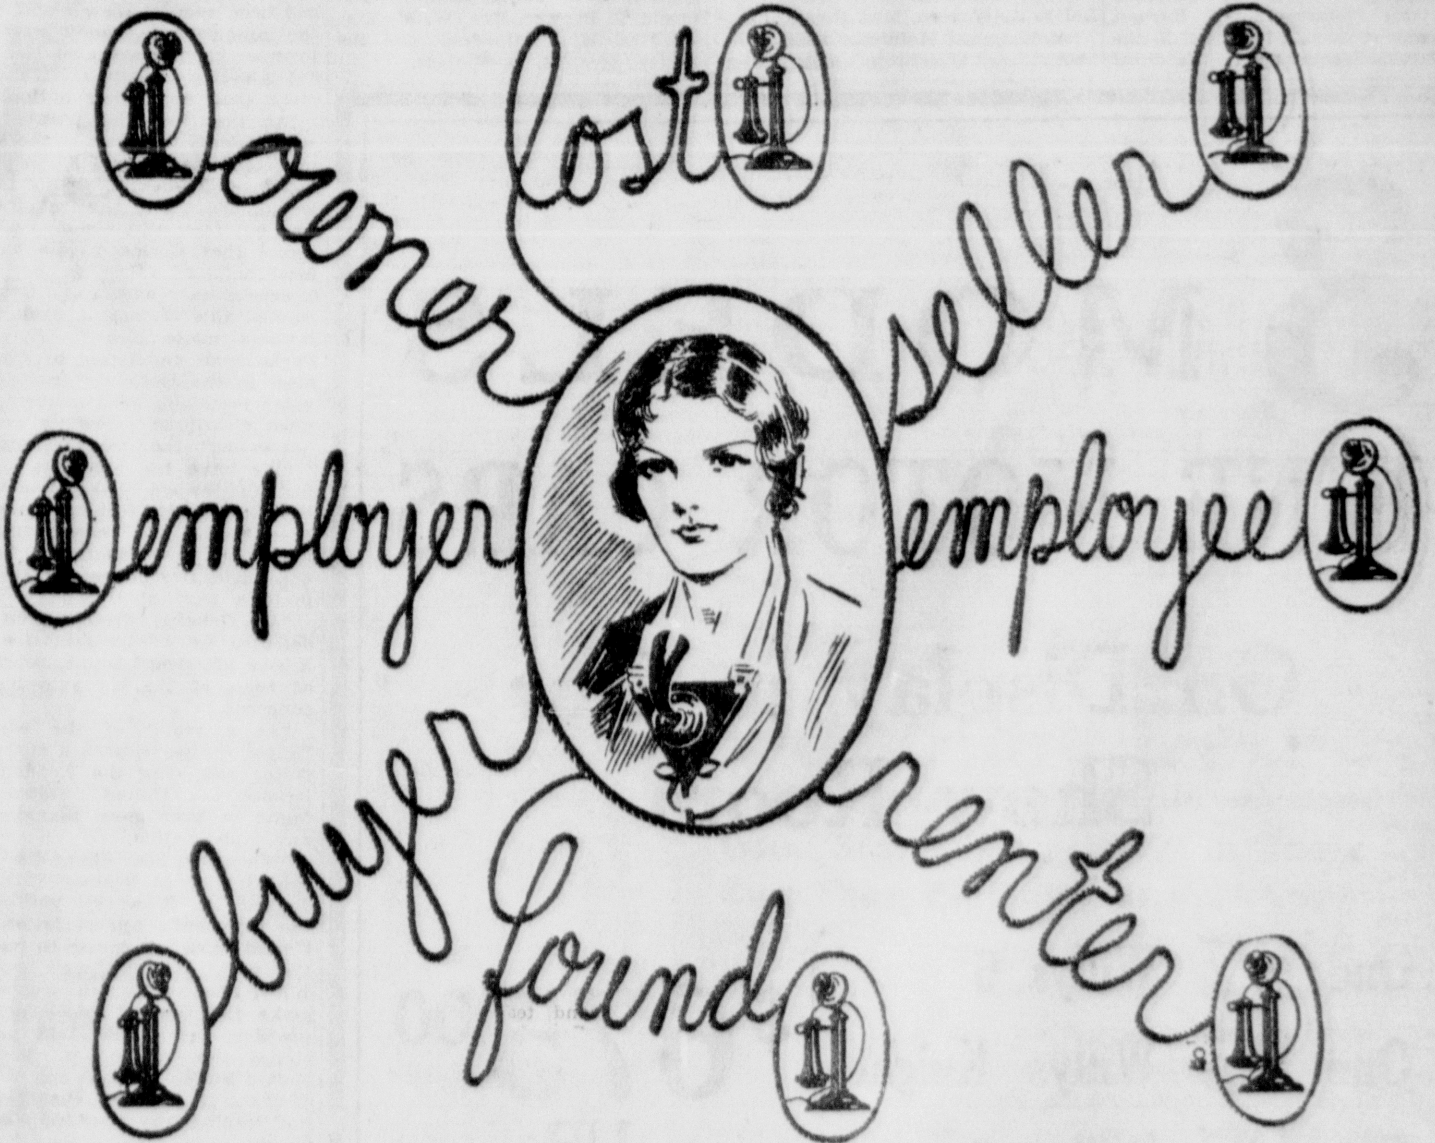 owner
lost
seller
employer
employee
buyer
found
renter